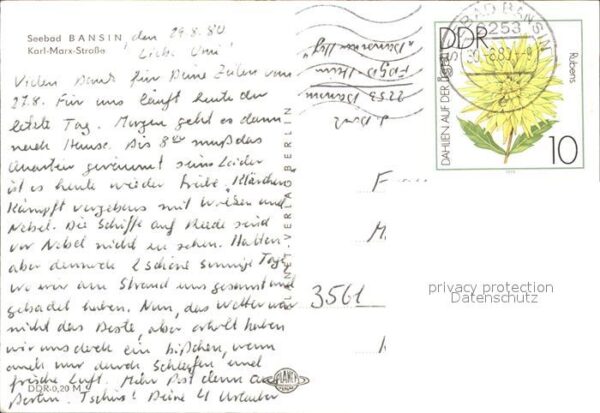 Seebad BANSIN, den 29.8.80
Karl-Marx-Straße
Liebe Omi!
Vielen Dank für Deine Zeilen vom
27.8. Für uns läuft heute der
letzte Tag. Morgen geht es dann
nach Hause. Bis 8 00 muß das
Quartier geräumt sein. Leider
ist es heute wieder trübe. Klärchen
kämpft vergebens mit Wolken und
Nebel. Die Schiffe auf Reede sind
vor Nebel nicht zu sehen. Hatten
aber dennoch 2 schöne sonnige Tage
wo wir am Strand uns gesonnt und
gebadet haben. Nun, das Wetter war
nicht das Beste, aber erholt haben
wir uns doch ein bißchen, wenn
auch nur durch Schlafen und
frische Luft. Mehr Post dann aus
Berlin. Tschüs! Deine 4 Urlauber
DDR-0,20 M
PLANET-VERLAG BERLIN
PLANET
2253 Bansin
FDGB-Heim
SEEBAD BANSIN
2253
DDR
DAHLIEN AUF DER
Rubens
10
F
M
3561
privacy protection
Datenschutz